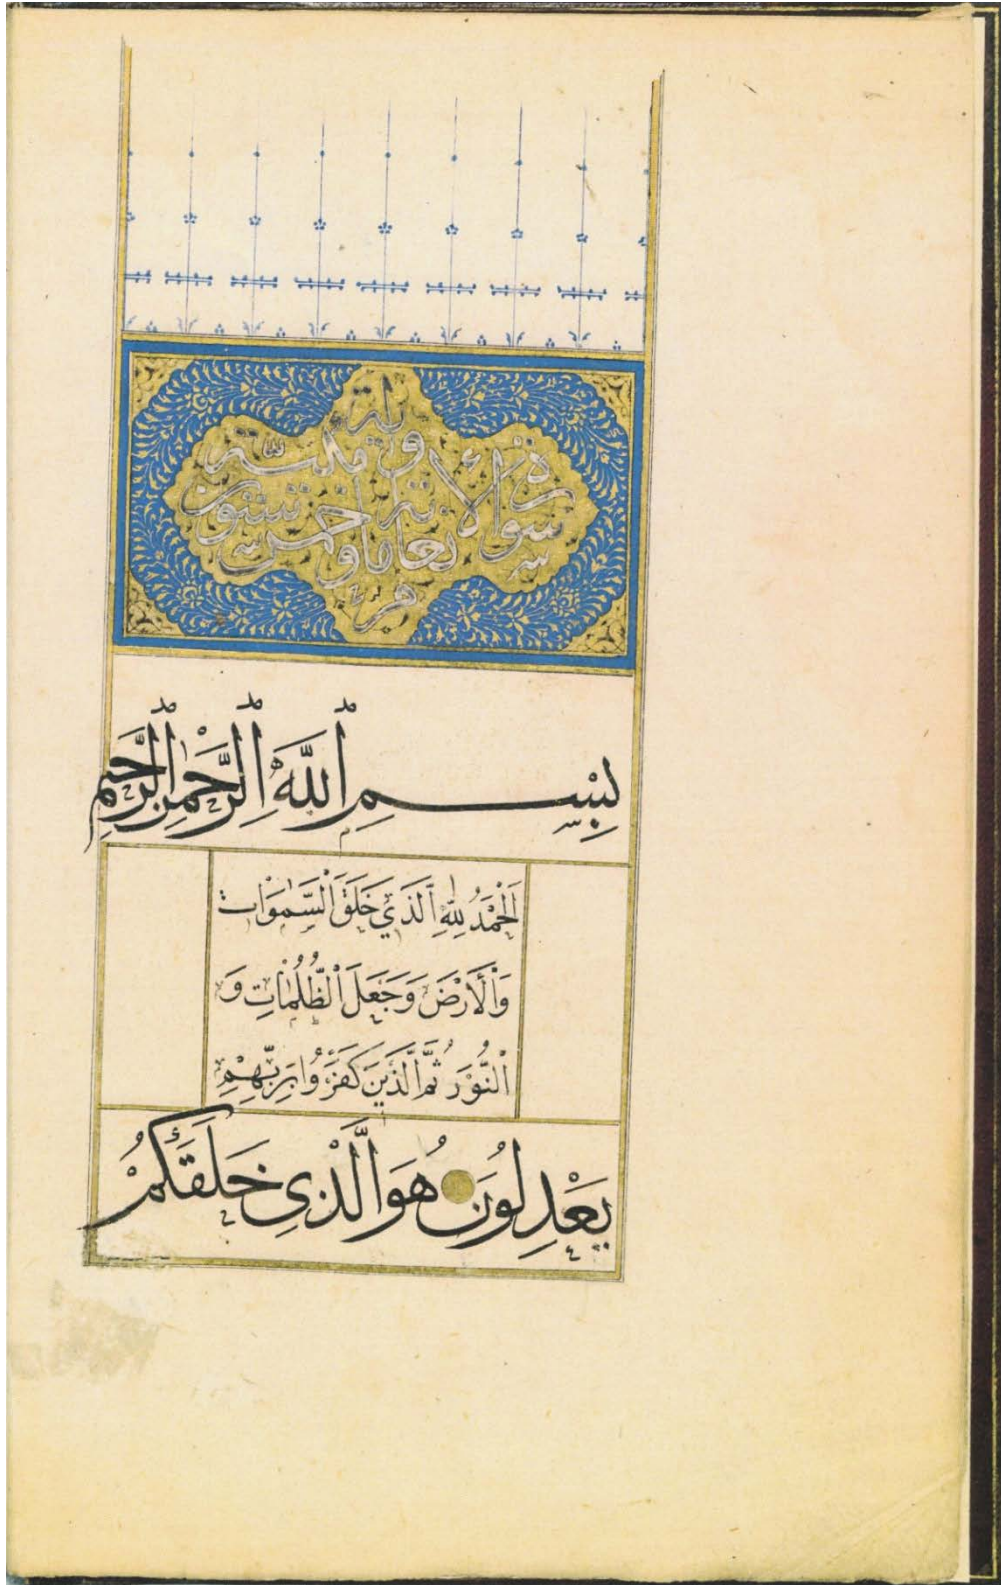 سورة الأنعام مائة وخمس وستون آية
بِسْمِ ٱللَّهِ ٱلرَّحْمٰنِ ٱلرَّحِيمِ
اَلْحَمْدُ لِلّٰهِ ٱلَّذِي خَلَقَ ٱلسَّمٰوَاتِ
وَٱلْأَرْضَ وَجَعَلَ ٱلظُّلُمَاتِ وَ
ٱلنُّورَ ثُمَّ ٱلَّذِينَ كَفَرُوا بِرَبِّهِمْ
يَعْدِلُونَ هُوَ ٱلَّذِي خَلَقَكُمْ